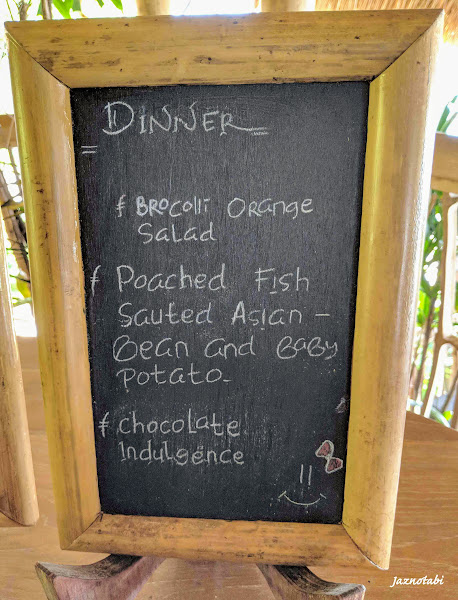 DINNER
Brocolli Orange
Salad
Poached Fish
Sauted Asian -
Bean and Baby
Potato-
chocolate
Indulgence
Jaznotabi